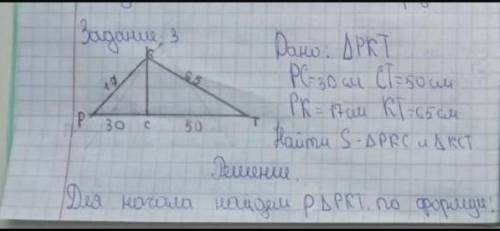 Задание 3
К
17
65
Р
30
С
50
Т
Дано: ΔPKT
PC=30см CT=50см
PK=17см KT=65см
Найти S-ΔPKC и ΔKCT
Решение.
Для начала найдем p ΔPKT. по формуле: